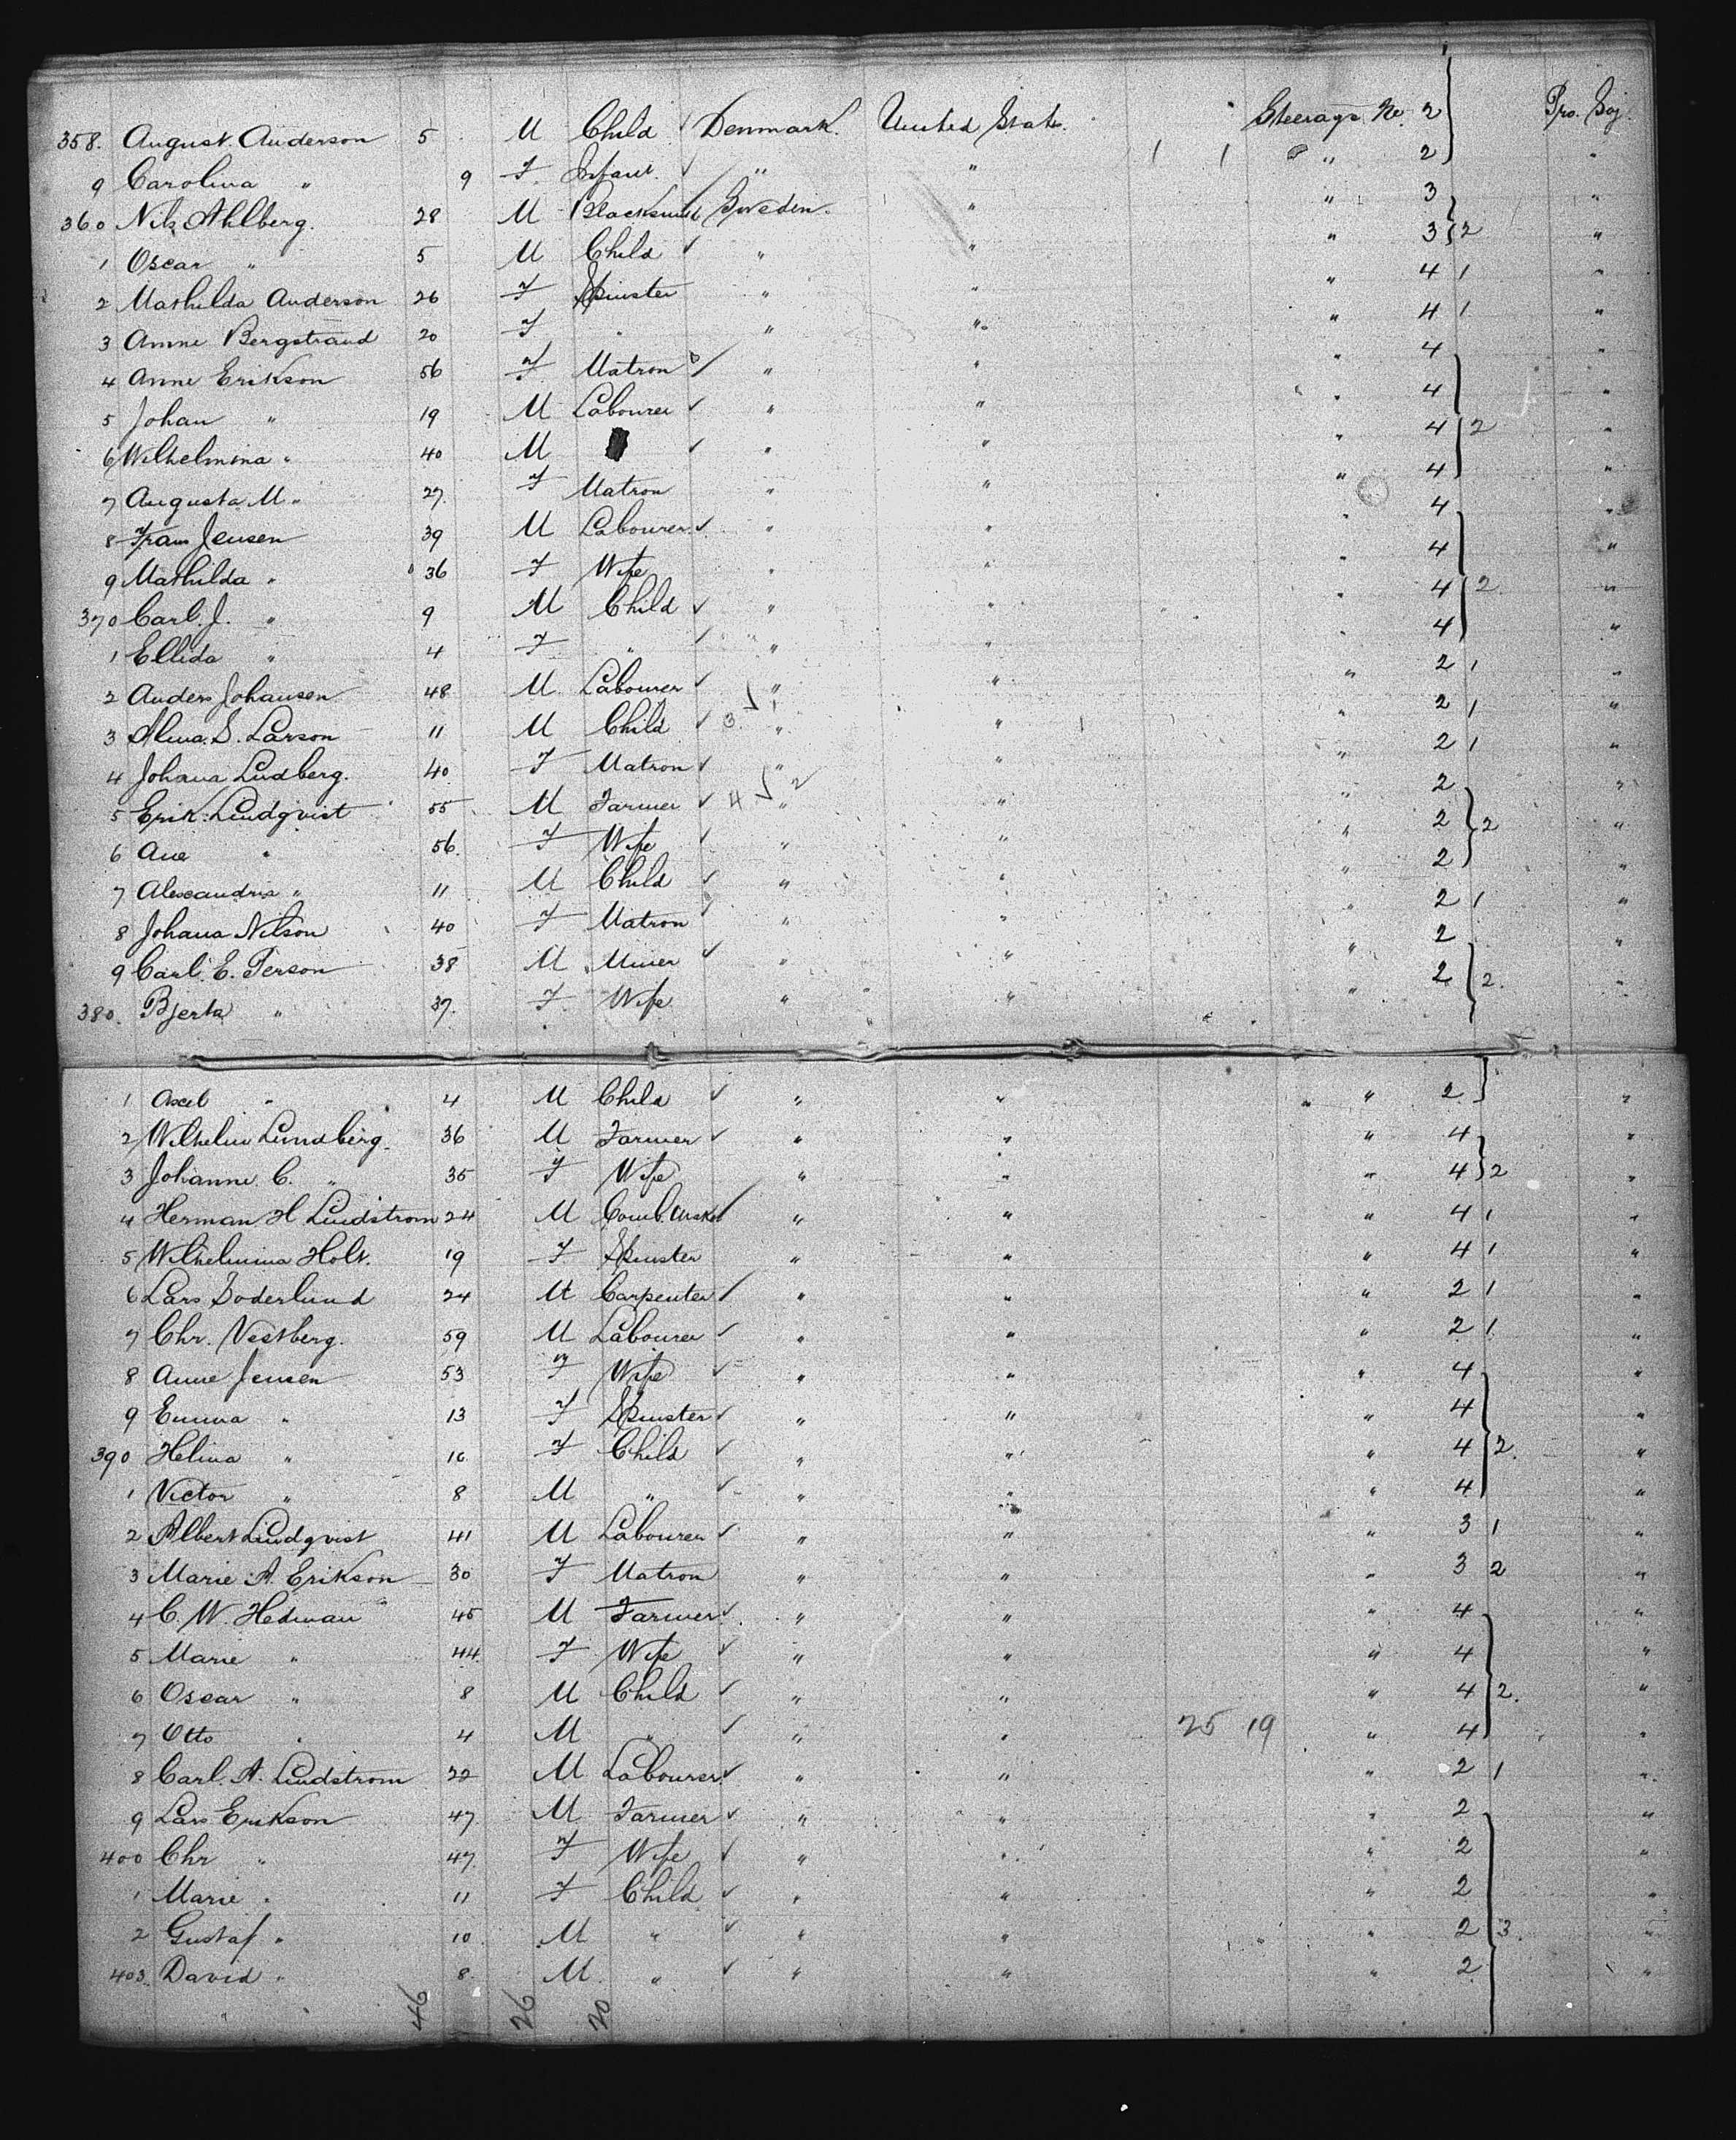 358. August. Anderson 5 M Child ✓ Denmark. United State. Steerage No. 2 Pro. Soj.
9 Carolina " 9 F. Infant. ✓ " " 1 1 " 2 "
360 Nils Ahlberg. 28 M Blacksmith Sweden. " " 3 "
1 Oscar " 5 M Child ✓ " " " 3 2 "
2 Mathilda Anderson 26 F Spinster " " " 4 1 "
3 Anne Bergstrand 20 F " " " " 4 1 "
4 Anne Erikson 56 F Matron ✓ " " " 4 "
5 Johan " 19 M Labourer ✓ " " " 4 "
6 Wilhelmina " 40 M ✓ " " " 4 2 "
7 Augusta M " 27. F Matron " " " 4 "
8 Frans Jensen 39 M Labourer ✓ " " " 4 "
9 Mathilda " 36 F Wife " " " 4 "
370 Carl. J. " 9 M Child ✓ " " " 4 2. "
1 Ellida " 4 F " ✓ " " " 4 "
2 Anders Johansen 48 M Labourer ✓ " " " 2 1 "
3 Alma. S. Larson 11 M Child ✓ 3 " " " 2 1 "
4 Johana Lindberg. 40 F Matron ✓ " " " 2 1 "
5 Erik. Lindqvist 55 M Farmer ✓ 4 ✓ 2 " " " 2 "
6 Ane " 56. F Wife ✓ " " " 2 2 "
7 Alexandria " 11 M Child ✓ " " " 2 "
8 Johana Nilson 40 F Matron ✓ " " " 2 1 "
9 Carl. E. Person 38 M Miner ✓ " " " 2 "
380. Bjerta " 37. F Wife " " " 2 2. "
1 Axel " 4 M Child ✓ " " " 2 "
2 Wilhelm Lundberg. 36 M Farmer ✓ " " " 4 "
3 Johanne C. " 35 F Wife " " " 4 2 "
4 Herman H Lindstrom 24 M ✓ " " " 4 1 "
5 Wilhelmina Holt. 19 F Spinster " " " 4 1 "
6 Lars Soderlund 24 M Carpenter ✓ " " " 2 1 "
7 Chr. Vestberg. 59 M Labourer ✓ " " " 2 1 "
8 Anne Jensen 53 F Wife ✓ " " " 4 "
9 Emma " 13 F Spinster ✓ " " " 4 "
390 Helina " 10 F Child ✓ " " " 4 2. "
1 Victor " 8 M " ✓ " " " 4 "
2 Albert Lindqvist 41 M Labourer ✓ " " " 3 1 "
3 Marie A. Erikson 30 F Matron " " " 3 2 "
4 C. W. Hedman 45 M Farmer ✓ " " " 4 "
5 Marie " 44. F Wife ✓ " " " 4 "
6 Oscar " 8 M Child ✓ " " " 4 2. "
7 Otto " 4 M " ✓ " " 25 19 " 4 "
8 Carl. A. Lindstrom 22 M Labourer ✓ " " " 2 1 "
9 Lars Erikson 47 M Farmer ✓ " " " 2 "
400 Chr " 47 F Wife ✓ " " " 2 "
1 Marie " 11 F Child ✓ " " " 2 "
2 Gustaf " 10 M " ✓ " " " 2 3. "
403. David " 8. M. " ✓ " " " 2 "
46 26 20